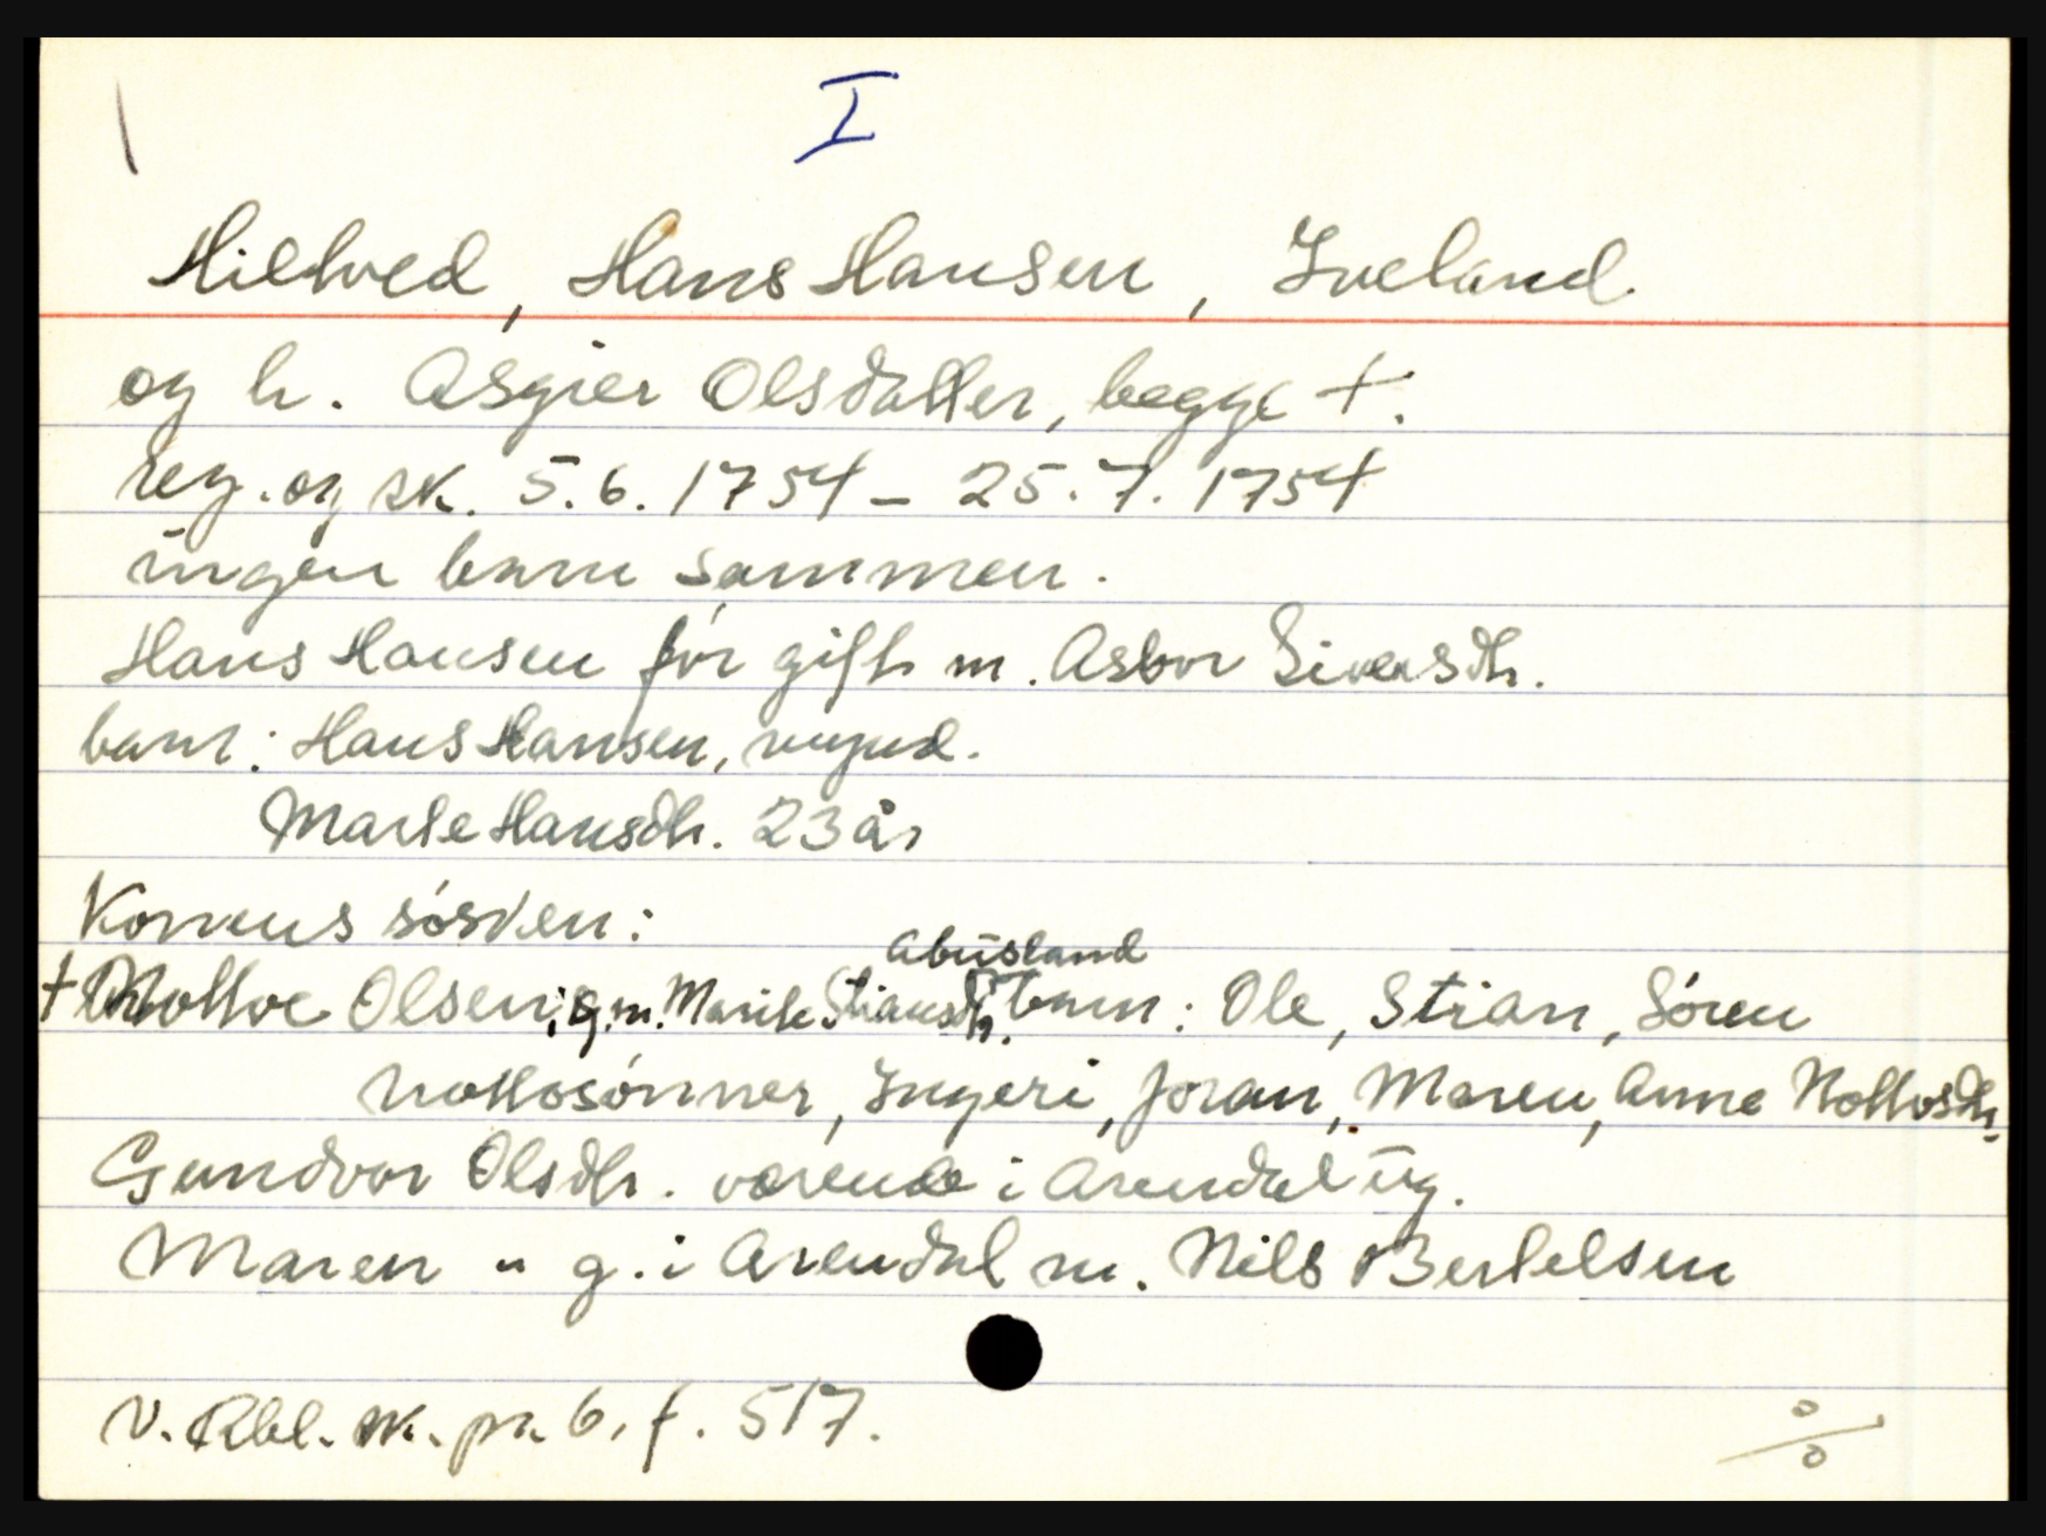 I
Hiltved, Hans Hansen, Iveland
og h. Asgier Olsdatter, begge +.
reg. og sk. 5.6.1754 - 25.7.1754
ingen barn sammen.
Hans Hansen før gift m. Asbor Siversdtr.
barn: Hans Hansen, mynd.
Marte Hansdtr. 23 år
Konens søsken:
Abusland
+ Nottov Olsen, g.m. Marite Stiansdtr. barn: Ole, Stian, Sören
Nottosönner, Ingeri, Joran, Maren, Anne Nottosdtr.
Gundvor Olsdtr. værende i Arendal ug.
Maren " g. i Arendal m. Nils Bertelsen
V. Rbl. sk. pr. 6, f. 517.
%